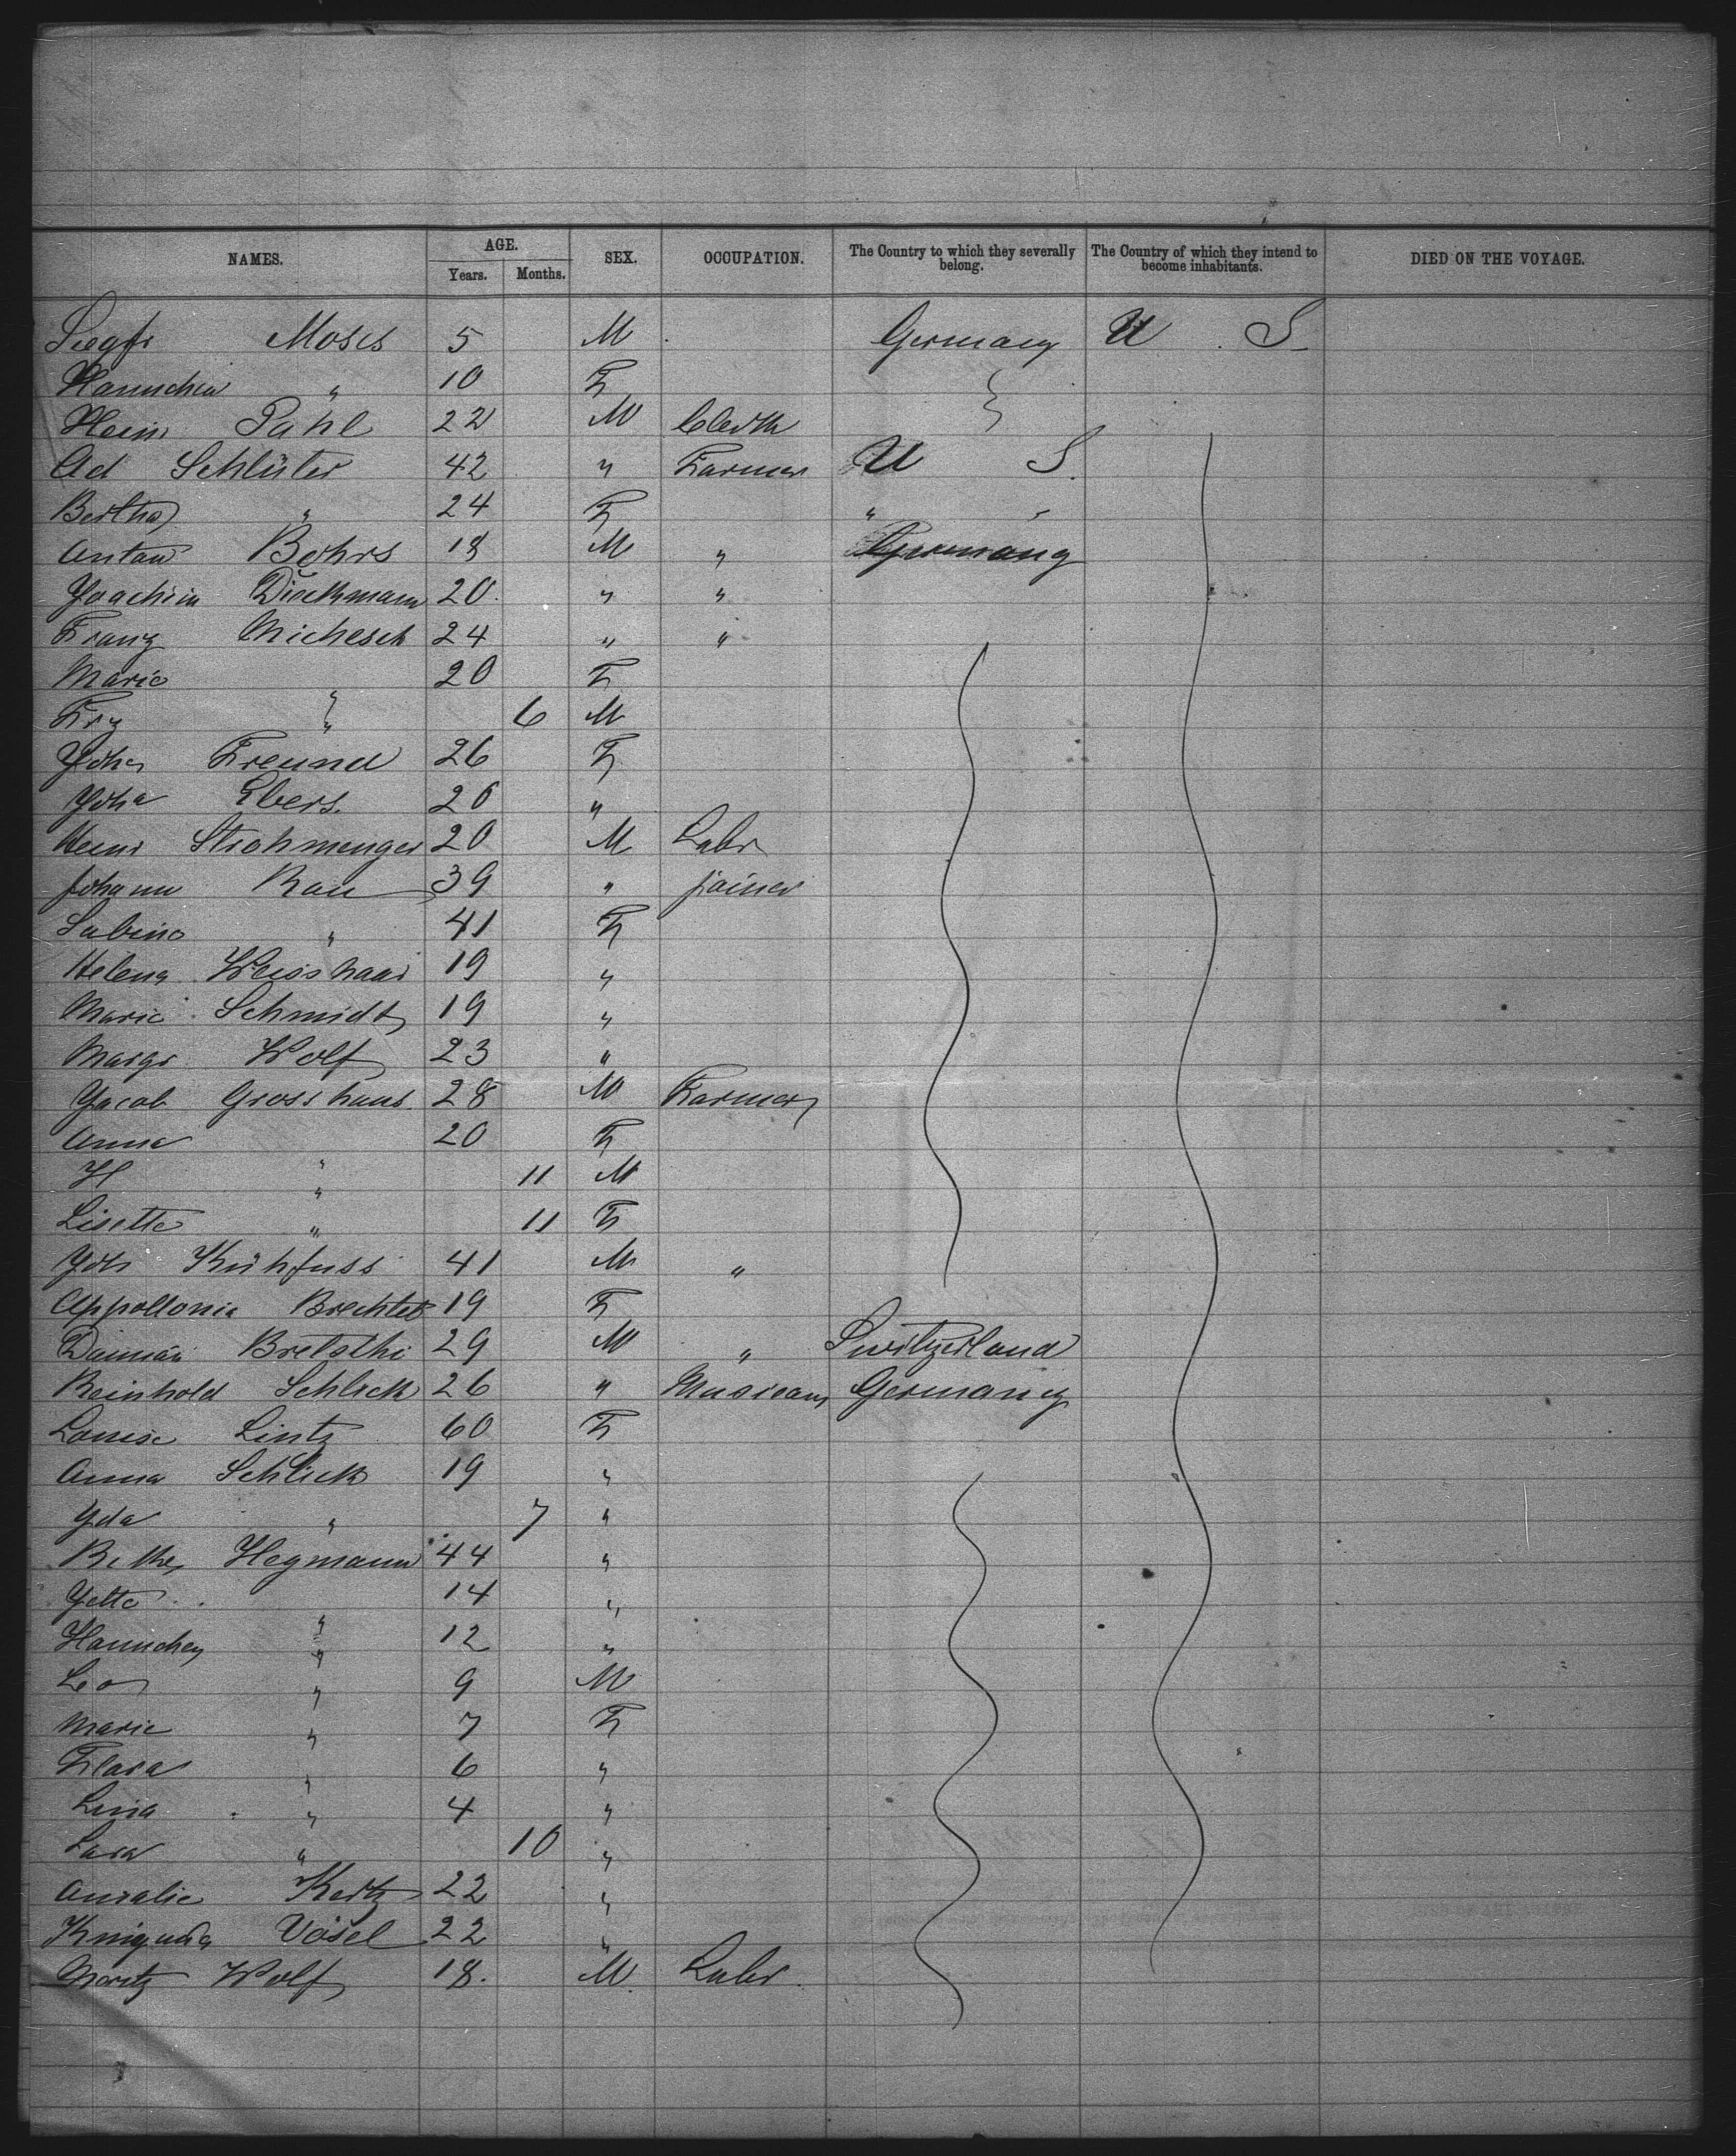 NAMES. AGE. Years. Months. SEX. OCCUPATION. The Country to which they severally belong. The Country of which they intend to become inhabitants. DIED ON THE VOYAGE.
Siegfr Moses 5 M Germany U S
Hannchen " 10 F
Heinr Pahl 22 M
Ad Schlüter 42 " Farmer U S.
Bertha " 24 F " "
Anton Bohrs 18 M " Germany
Joachim Dieckmann 20 " "
Franz 24 " "
Marie " 20 F
Frz " 6 M
Joha Freund 26 F
Joha Ebers. 20 "
Heinr Strohmenger 20 M Labr
Johann Rau 39 " joiner
Sabina " 41 F
Helena Weisshaar 19 "
Marie Schmidt 19 "
Margr Wolf 23 "
Jacob Grosshans 28 M Farmer
Anna " 20 F
H " 11 M
Lisette " 11 F
Joh Kühfuss 41 M "
Appollonia 19 F
Damian 29 M " Switzerland
Reinhold Schlick 26 " Musican Germany
Louise Lintz 60 F
Anna Schlick 19 "
Ida " 7 "
Hegmann 44 "
Jette " 14 "
Hannchen " 12 "
Leo " 9 M
Marie " 7 F
" 6 "
Lina " 4 "
Sara " 10 "
Amalie 22 "
Vösel 22 "
Moritz Wolf 18. M Labr